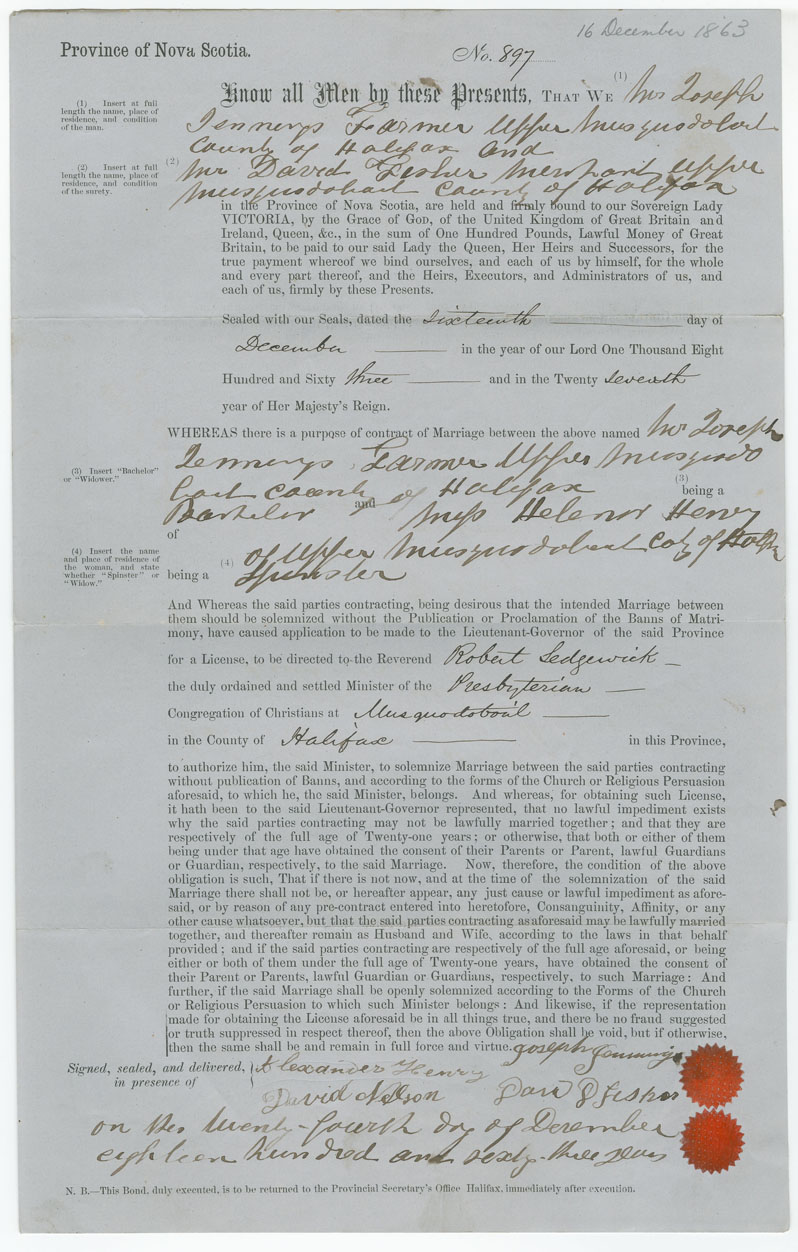 16 December 1863
Province of Nova Scotia.
No. 897
Know all Men by these Presents, THAT WE (1) Mr Joseph
(1) Insert at full length the name, place of residence, and condition of the man.
Jennings Farmer Upper Musquodoboit
County of Halifax and
(2) Insert at full length the name, place of residence, and condition of the surety.
(2) Mr David Fisher Merchant Upper
Musquodoboit County of Halifax
in the Province of Nova Scotia, are held and firmly bound to our Sovereign Lady
VICTORIA, by the Grace of GOD, of the United Kingdom of Great Britain and
Ireland, Queen, &c., in the sum of One Hundred Pounds, Lawful Money of Great
Britain, to be paid to our said Lady the Queen, Her Heirs and Successors, for the
true payment whereof we bind ourselves, and each of us by himself, for the whole
and every part thereof, and the Heirs, Executors, and Administrators of us, and
each of us, firmly by these Presents.
Sealed with our Seals, dated the sixteenth day of
December in the year of our Lord One Thousand Eight
Hundred and Sixty three and in the Twenty seventh
year of Her Majesty's Reign.
WHEREAS there is a purpose of contract of Marriage between the above named Mr Joseph
Jennings Farmer Upper Musquodo
boit County of Halifax (3) being a
(3) Insert "Bachelor" or "Widower."
Bachelor and Miss Helenor Henry
of
(4) of Upper Musquodoboit Coty of Halifx
(4) Insert the name and place of residence of the woman, and state whether "Spinster" or "Widow."
being a Spinster
And Whereas the said parties contracting, being desirous that the intended Marriage between
them should be solemnized without the Publication or Proclamation of the Banns of Matri-
mony, have caused application to be made to the Lieutenant-Governor of the said Province
for a License, to be directed to the Reverend Robert Sedgewick
the duly ordained and settled Minister of the Presbyterian
Congregation of Christians at Musquodoboit
in the County of Halifax in this Province,
to authorize him, the said Minister, to solemnize Marriage between the said parties contracting
without publication of Banns, and according to the forms of the Church or Religious Persuasion
aforesaid, to which he, the said Minister, belongs. And whereas, for obtaining such License,
it hath been to the said Lieutenant-Governor represented, that no lawful impediment exists
why the said parties contracting may not be lawfully married together; and that they are
respectively of the full age of Twenty-one years; or otherwise, that both or either of them
being under that age have obtained the consent of their Parents or Parent, lawful Guardians
or Guardian, respectively, to the said Marriage. Now, therefore, the condition of the above
obligation is such, That if there is not now, and at the time of the solemnization of the said
Marriage there shall not be, or hereafter appear, any just cause or lawful impediment as afore-
said, or by reason of any pre-contract entered into heretofore, Consanguinity, Affinity, or any
other cause whatsoever, but that the said parties contracting as aforesaid may be lawfully married
together, and thereafter remain as Husband and Wife, according to the laws in that behalf
provided; and if the said parties contracting are respectively of the full age aforesaid, or being
either or both of them under the full age of Twenty-one years, have obtained the consent of
their Parent or Parents, lawful Guardian or Guardians, respectively, to such Marriage: And
further, if the said Marriage shall be openly solemnized according to the Forms of the Church
or Religious Persuasion to which such Minister belongs: And likewise, if the representation
made for obtaining the License aforesaid be in all things true, and there be no fraud suggested
or truth suppressed in respect thereof, then the above Obligation shall be void, but if otherwise,
then the same shall be and remain in full force and virtue. Joseph Jennings
Signed, sealed, and delivered, in presence of
Alexander Henry
David Nelson David Fisher
on the twenty-fourth day of December
eighteen hundred and sixty-three years
N. B.—This Bond, duly executed, is to be returned to the Provincial Secretary's Office Halifax, immediately after execution.